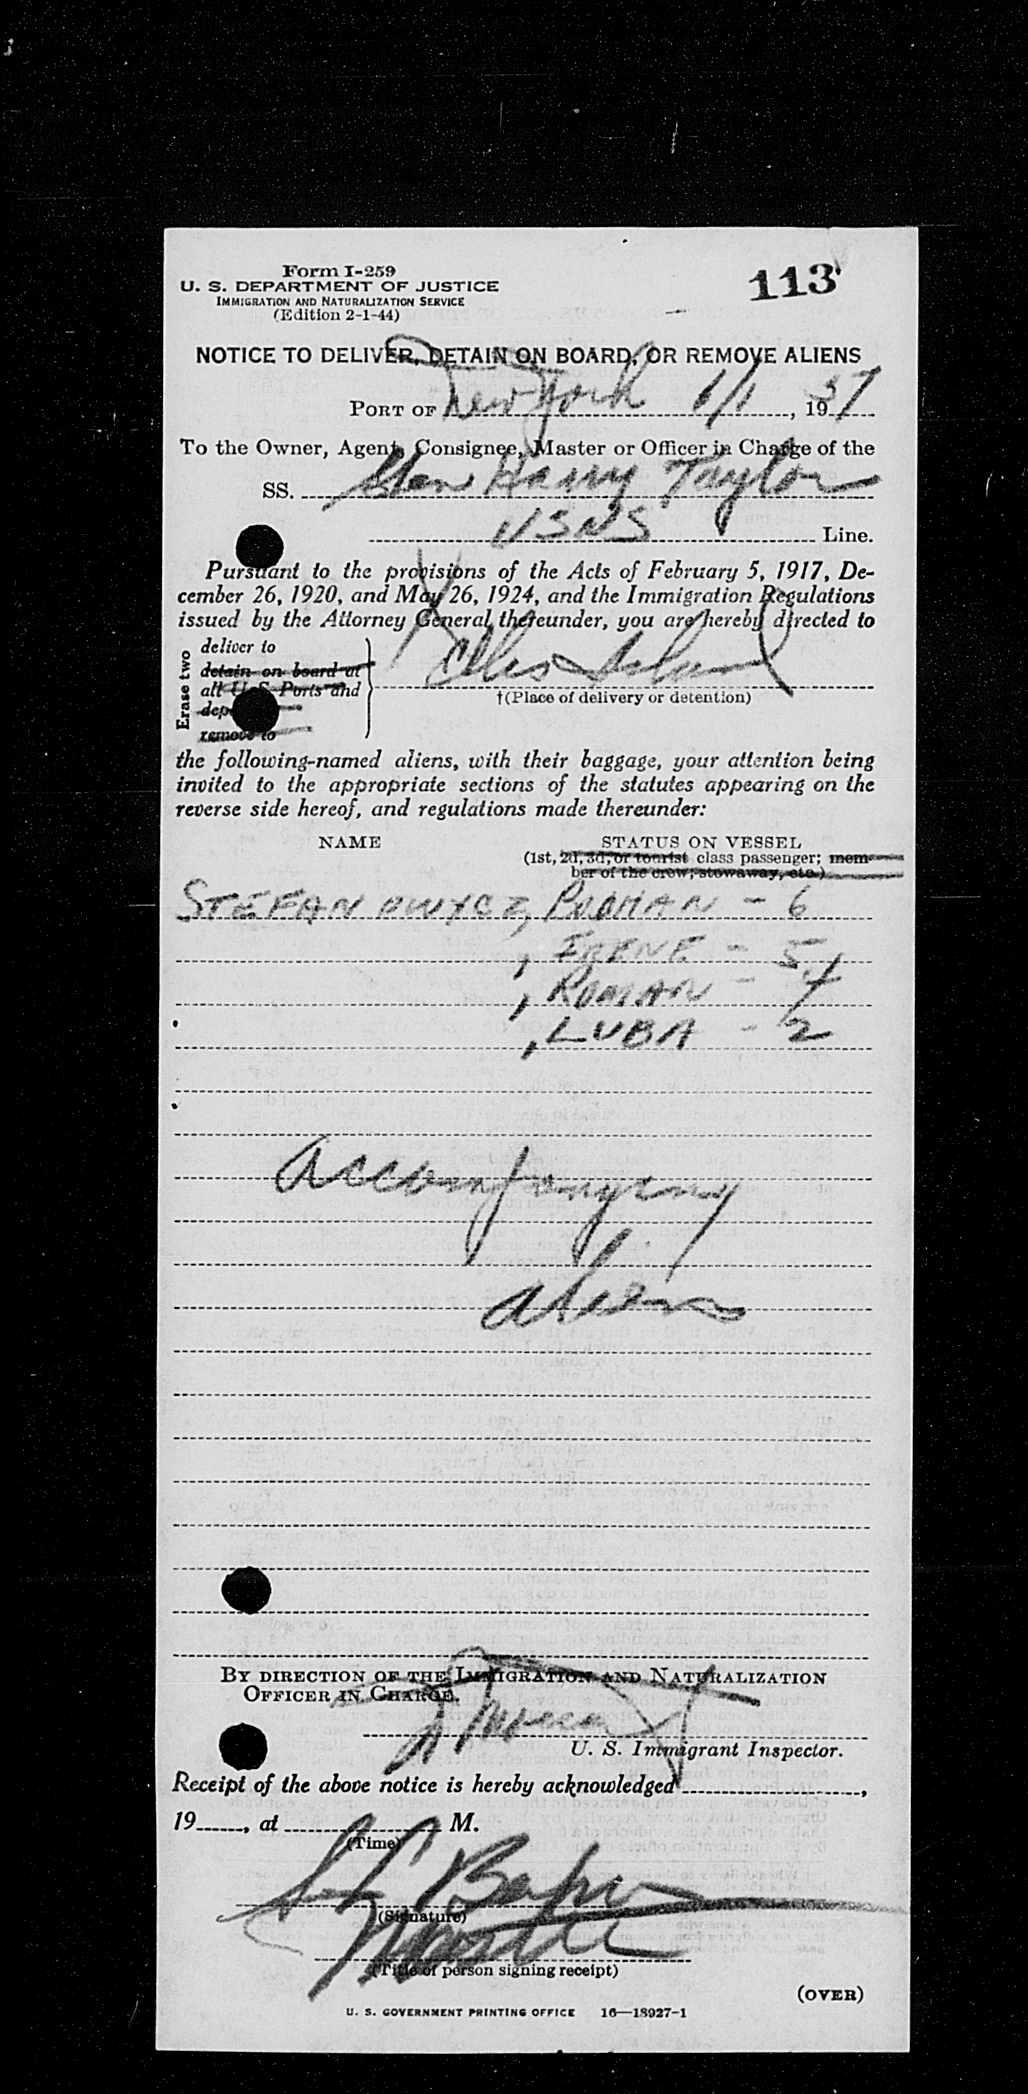 Form I-259
U. S. DEPARTMENT OF JUSTICE
IMMIGRATION AND NATURALIZATION SERVICE
(Edition 2-1-44)
113
NOTICE TO DELIVER, DETAIN ON BOARD, OR REMOVE ALIENS
PORT OF New York 6/1, 1937
To the Owner, Agent, Consignee, Master or Officer in Charge of the
SS. Harry Taylor
USNS Line.
Pursuant to the provisions of the Acts of February 5, 1917, De-
cember 26, 1920, and May 26, 1924, and the Immigration Regulations
issued by the Attorney General thereunder, you are hereby directed to
Erase two
deliver to
detain on board at
all U. S. Ports and
remove to
Ellis Island
†(Place of delivery or detention)
the following-named aliens, with their baggage, your attention being
invited to the appropriate sections of the statutes appearing on the
reverse side hereof, and regulations made thereunder:
NAME STATUS ON VESSEL
(1st, 2d, 3d, or tourist class passenger; mem-
ber of the crew, stowaway, etc.)
- 6
, IRENE - 5
, ROMAN -
, LUBA - 2
Accompanying
aliens
BY DIRECTION OF THE IMMIGRATION AND NATURALIZATION
OFFICER IN CHARGE.
U. S. Immigrant Inspector.
Receipt of the above notice is hereby acknowledged ,
19 , at M.
(Time)
(Signature)
(Title of person signing receipt)
(OVER)
U. S. GOVERNMENT PRINTING OFFICE 16—18927-1